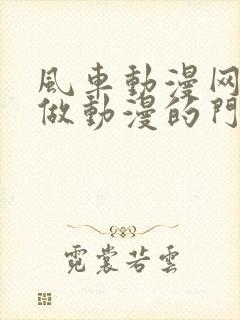 風車動漫网
做動漫的門
霓裳若雲